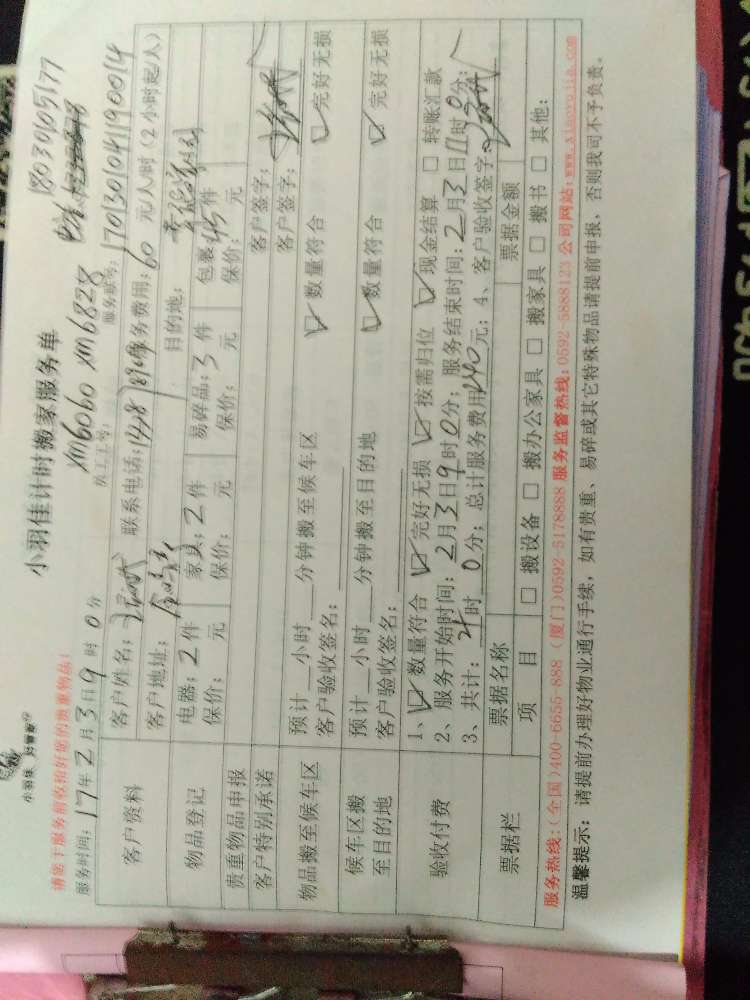 小羽佳 好管家
小羽佳计时搬家服务单
18030105177
请您于服务前收捡好您的贵重物品!
员工工号: XM6060 XM6828
服务时间: 17年2月3日9时0分
服务单号: 1701301041190014
客户资料
客户姓名:
联系电话:
服务费用: 60 元/人时 (2小时起/人)
客户地址:
目的地:
物品登记
电器: 2 件
家具: 2 件
易碎品: 3 件
包裹: 45 件
保价: 元
保价: 元
保价: 元
保价: 元
贵重物品申报
客户签字:
客户特别承诺
客户签字:
物品搬至候车区
预计 小时 分钟搬至候车区
☑数量符合 ☑完好无损
客户验收签名:
候车区搬至目的地
预计 小时 分钟搬至目的地
☑数量符合 ☑完好无损
客户验收签名:
验收付费
1、☑数量符合 ☑完好无损 ☑按需归位 ☑现金结算 □转账汇款
2、服务开始时间: 2月3日9时0分; 服务结束时间: 2月3日11时0分;
3、共计: 时0分; 总计服务费用240元; 4、客户验收签字
票据栏
票据名称
票据金额
项 目
□ 搬设备 □ 搬办公家具 □ 搬家具 □ 搬书 □ 其他:
服务热线: (全国)400-6655-888 (厦门)0592-5178888 服务监督热线: 0592-5888123 公司网站: www.xiaoyujia.com
温馨提示: 请提前办理好物业通行手续, 如有贵重、易碎或其它特殊物品请提前申报, 否则我司不予负责。